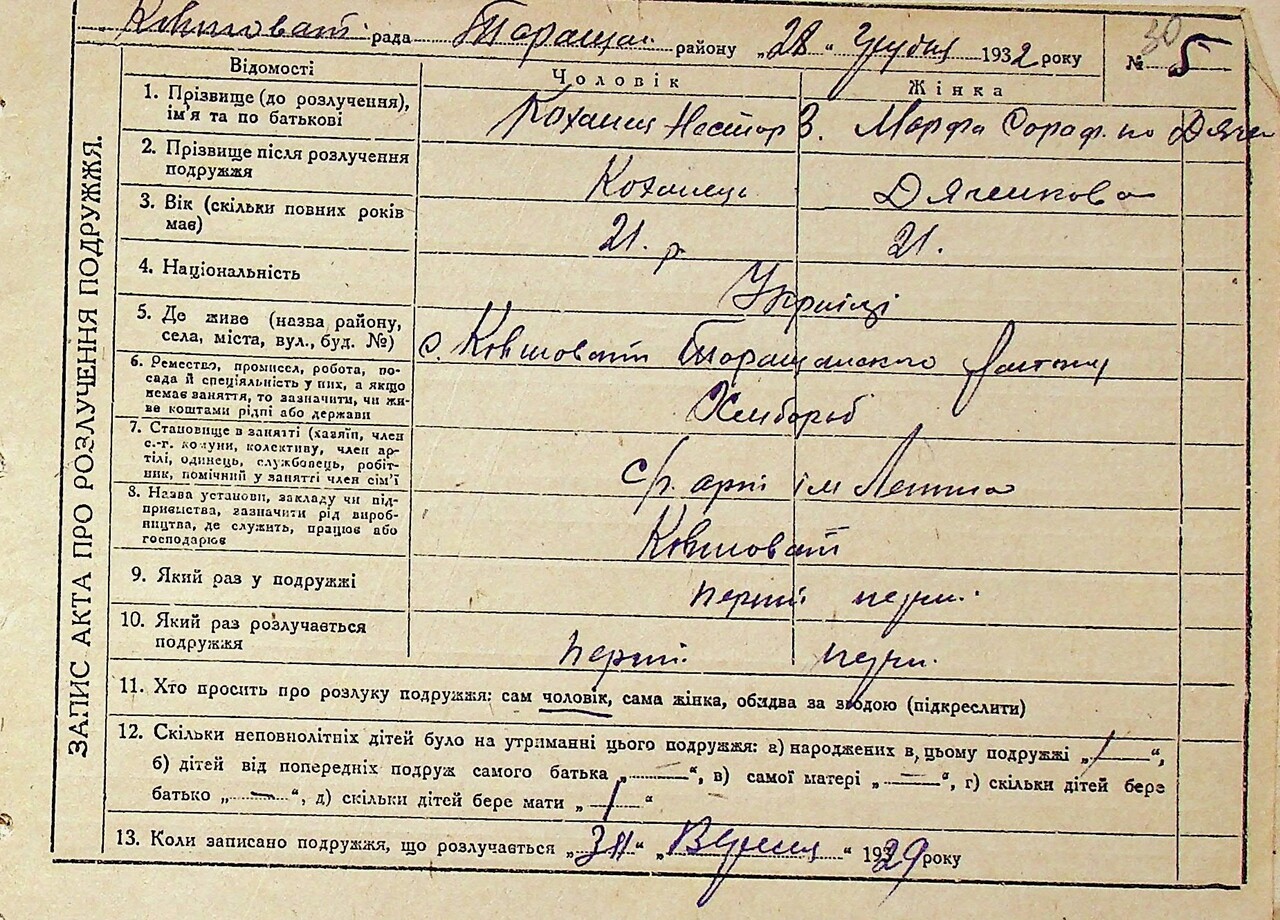 Ковшоват рада Таращан. району „28“ Грудня 1932 року
№ 5
30
ЗАПИС АКТА ПРО РОЗЛУЧЕННЯ ПОДРУЖЖЯ.
Відомості Чоловік Жінка
1. Прізвище (до розлучення), ім'я та по батькові
Коханец Нестор З. Марфа
2. Прізвище після розлучення подружжя
Коханець Дяченкова
3. Вік (скільки повних років має)
21. р 21.
4. Національність
Українці
5. Де живе (назва району, села, міста, вул., буд. №)
с. Ковшоват Таращанского району
6. Ремество, промисел, робота, по-
сада й спеціяльність у них, а якщо
немає заняття, то зазначити, чи жи-
ве коштами рідні або держави
Хлибороб
7. Становище в занятті (хазяїн, член
с.-г. комуни, колективу, член ар-
тілі, одинець, службовець, робіт-
ник, помічний у занятті член сім'ї
с/г. арт ім Леніна
8. Назва установи, закладу чи під-
приємства, зазначити рід вироб-
ництва, де служить, працює або
господарює
Ковшоват
9. Який раз у подружжі
перший
10. Який раз розлучається
подружжя
перший
11. Хто просить про розлуку подружжя: сам чоловік, сама жінка, обидва за згодою (підкреслити)
12. Скільки неповнолітніх дітей було на утриманні цього подружжя: а) народжених в цьому подружжі „1“,
б) дітей від попередніх подруж самого батька „—“, в) самої матері „—“, г) скільки дітей бере
батько „—“, д) скільки дітей бере мати „1“
13. Коли записано подружжя, що розлучається Вересня 1929 року